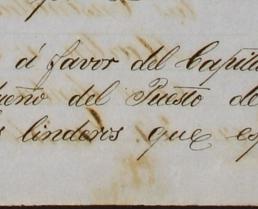 á favor del Capita
ueño del Puesto de
s linderos que esp